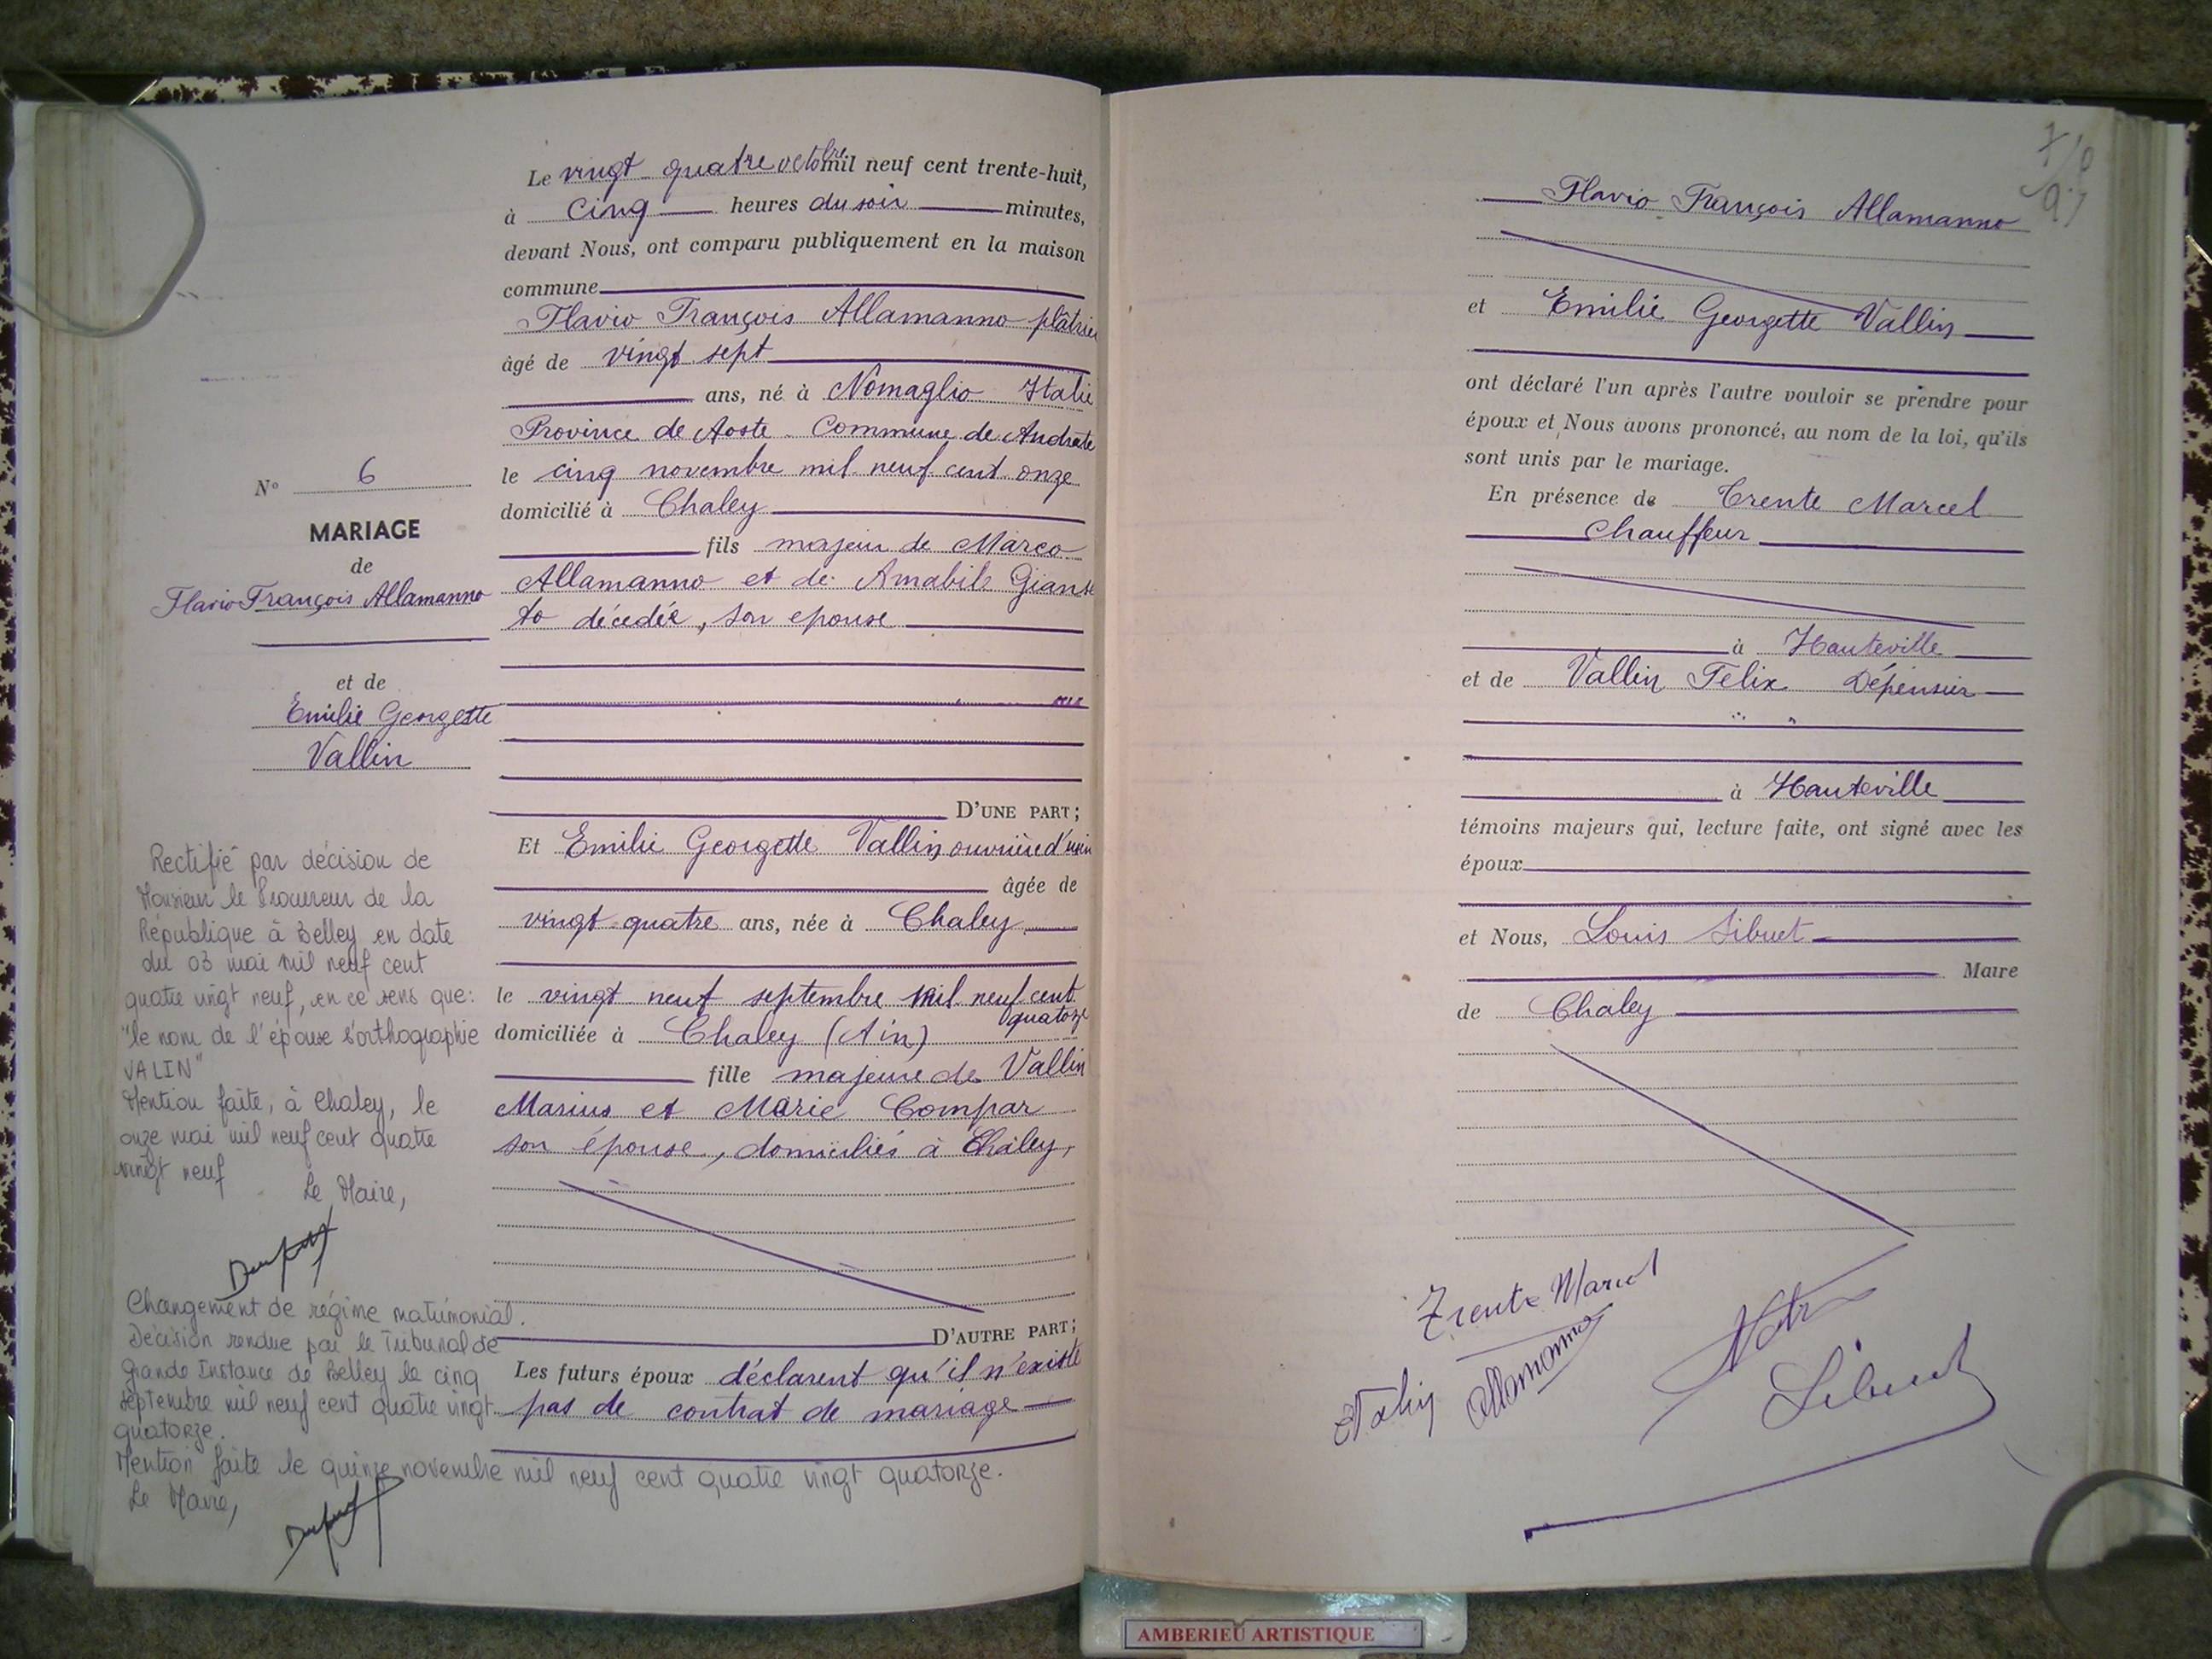 Le vingt quatre octobre mil neuf cent trente-huit,
à cinq heures du soir minutes,
devant Nous, ont comparu publiquement en la maison
commune
Flavio François Allamanno plâtrier
âgé de vingt sept
ans, né à Nomaglio Italie
Province de Aoste Commune de Andrate
le cinq novembre mil neuf cent onze
domicilié à Chaley
fils majeur de Marco
Allamanno et de Amabile Gianot
to décédée, son epouse
D'UNE PART;
Et Emilie Georgette Vallin ouvrière d'usin
âgée de
vingt-quatre ans, née à Chaley
le vingt neuf septembre mil neuf cent
quatorze
domiciliée à Chaley (Ain)
fille majeure de Vallin
Marius et Marie Compar
son épouse, domiciliés à Chaley,
D'AUTRE PART;
Les futurs époux déclarent qu'il n'existe
pas de contrat de mariage
N° 6
MARIAGE
de
Flavio François Allamanno
et de
Emilie Georgette
Vallin
Rectifié par décision de
Monsieur le Procureur de la
République à Belley en date
du 03 mai mil neuf cent
quatre vingt neuf, en ce sens que:
"le nom de l'épouse s'orthographie
VALIN"
Mention faite, à Chaley, le
onze mai mil neuf cent quatre
vingt neuf
Le Maire,
Changement de régime matrimonial.
Décision rendue par le Tribunal de
Grande Instance de Belley le cinq
septembre mil neuf cent quatre vingt
quatorze.
Mention faite le quinze novembre mil neuf cent quatre vingt quatorze.
Le Maire,
Flavio François Allamanno
et Emilie Georgette Vallin
ont déclaré l'un après l'autre vouloir se prendre pour
époux et Nous avons prononcé, au nom de la loi, qu'ils
sont unis par le mariage.
En présence de Trente Marcel
Chauffeur
à Hauteville
et de Vallin Felix Dépensier
à Hauteville
témoins majeurs qui, lecture faite, ont signé avec les
époux
et Nous, Louis Sibuet
Maire
de Chaley
Trente Marcel
Allamanno
Sibuet
AMBERIEU ARTISTIQUE